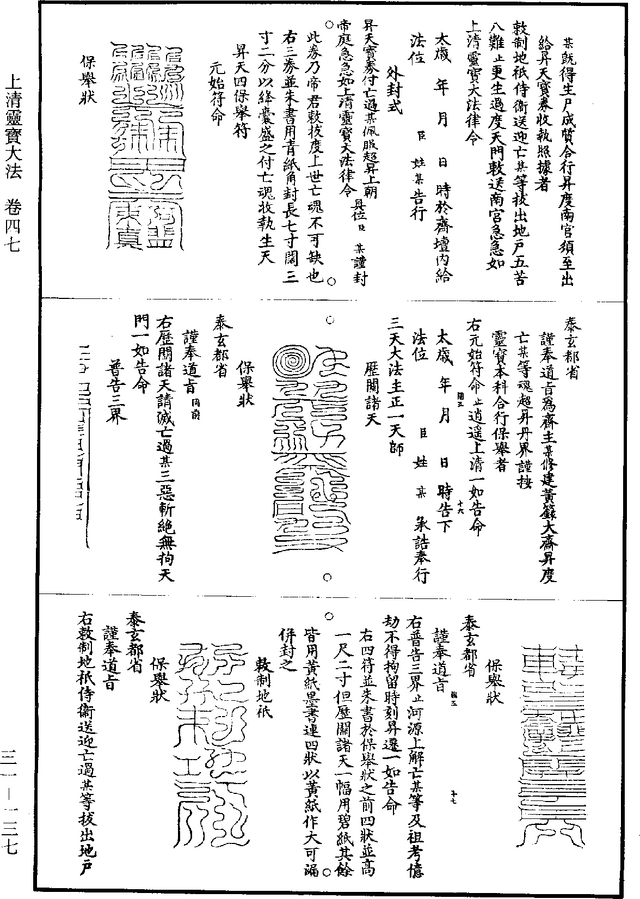 某既得生尸成質合行昇度南宫須至出
給昇天寶券收執照據者
敕制地祇侍衛送迎亡某等拔出地户五苦
八難止更生過度天門敕送南宮急急如
上清靈寶大法律令
太歲 年 月 日 時於齋壇内給
法位 臣 姓某告行
外封式
昇天寶券付亡過某佩服超昇上朝
帝庭急急如上清靈寶大法律令 具位臣 某謹封
此券乃帝君敕拔度上世亡魂不可缺也
右三券並朱書用青紙角封長七寸闊三
寸二分以絳囊盛之付亡魂收執生天
昇天四保舉符
元始符命
保舉狀
泰玄都省
謹奉道旨爲齋主某修建黄籙大齋昇度
亡某等魂超昇丹界謹按
靈寶本科合行保舉者
右元始符命止逍遥上清一如告命
太歲 年 月 日 時告下
法位 臣 姓 某 承誥奉行
三天大法主正一天師
歷關諸天
保舉狀
泰玄都省
謹奉道旨 同前
右歷關諸天請滅亡過某三惡斬絶無拘天
門一如告命
普告三界
保舉狀
泰玄都省
謹奉道旨
右普告三界止河源上解亡某等及祖考億
劫不得拘留時刻昇遷一如告命
右四符並朱書於保舉狀之前四狀並高
一尺二寸但歷關諸天一幅用碧紙其餘
皆用黄紙墨書連四狀以黄紙作大可漏
併封之
敕制地祇
保舉狀
泰玄都省
謹奉道旨
右敕制地祇侍衛送迎亡過某等拔出地户
上清靈寶大法 卷四七
三一—一三七